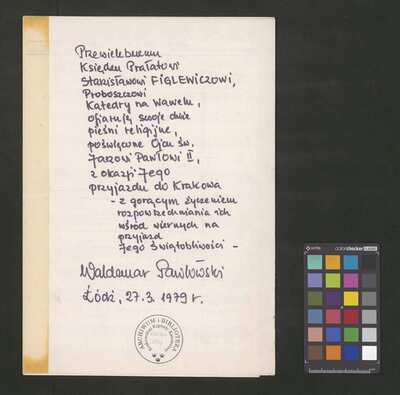 Przewielebnemu
Księdzu Prałatowi
Stanisławowi FIGLEWICZOWI,
Proboszczowi
Katedry na Wawelu,
ofiaruję swoje dwie
pieśni religijne,
poświęcone Ojcu św.
Janowi Pawłowi II,
z okazji Jego
przyjazdu do Krakowa
- z gorącym życzeniem
rozpowszechniania ich
wśród wiernych na
przyjazd
Jego Świątobliwości -
Waldemar Pawłowski
Łódź, 27.3.1979 r.
ARCHIWUM i BIBLIOTEKA
Krakowskiej Kapituły Katedralnej
colorchecker